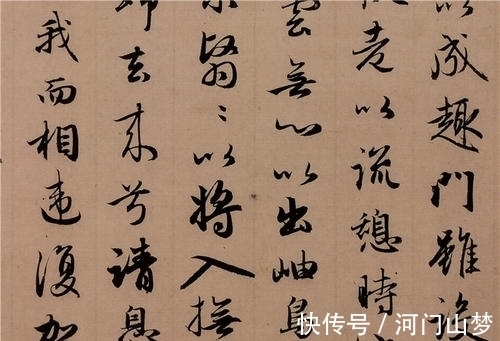 以成趣門雖設
老以流憩時
雲無心以出岫鳥
翳〻以將入撫
歸去來兮請息
我而相違復駕
快传号 / 河门山梦